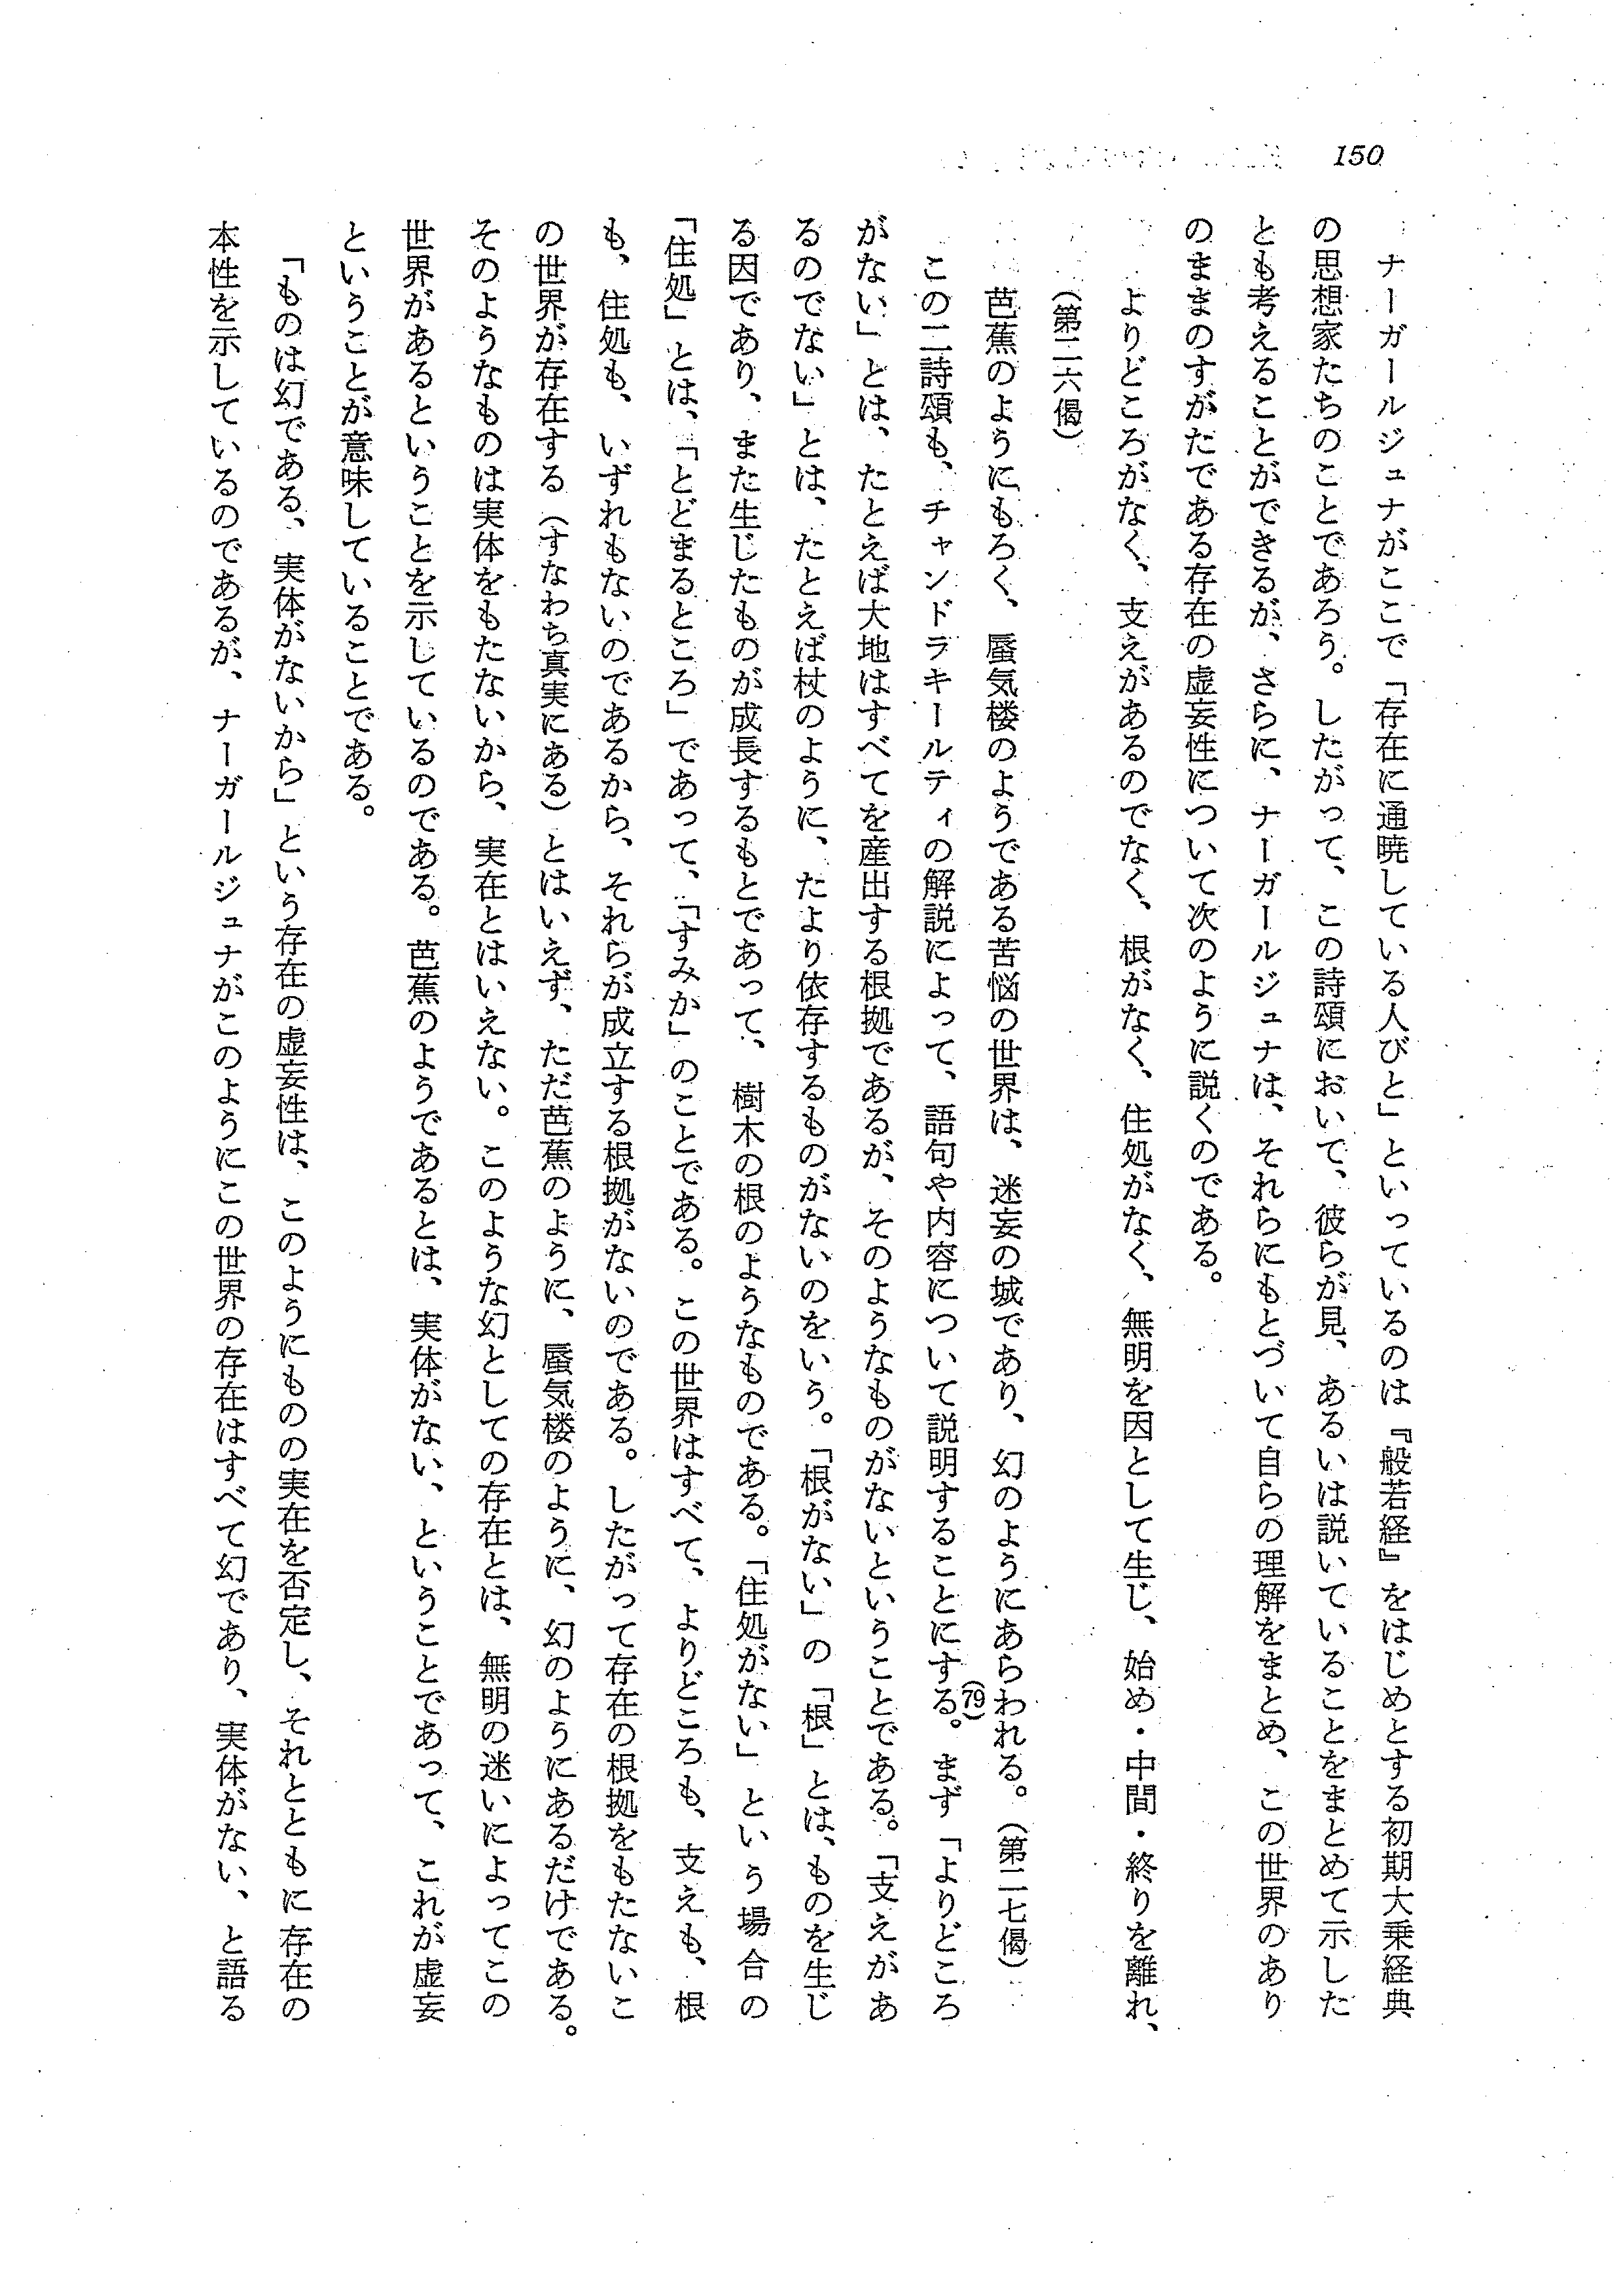 150
ナーガールジュナがここで「存在に通暁している人びと」といっているのは『般若経』をはじめとする初期大乗経典
の思想家たちのことであろう。したがって、この詩頌において、彼らが見、あるいは説いていることをまとめて示した
とも考えることができるが、さらに、ナーガールジュナは、それらにもとづいて自らの理解をまとめ、この世界のあり
のままのすがたである存在の虚妄性について次のように説くのである。
よりどころがなく、支えがあるのでなく、根がなく、住処がなく、無明を因として生じ、始め・中間・終りを離れ、
（第二六偈）
芭蕉のようにもろく、蜃気楼のようである苦悩の世界は、迷妄の城であり、幻のようにあらわれる。（第二七偈）
この二詩頌も、チャンドラキールティの解説によって、語句や内容について説明することにする。(79)まず「よりどころ
がない」とは、たとえば大地はすべてを産出する根拠であるが、そのようなものがないということである。「支えがあ
るのでない」とは、たとえば杖のように、たより依存するものがないのをいう。「根がない」の「根」とは、ものを生じ
る因であり、また生じたものが成長するもとであって、樹木の根のようなものである。「住処がない」という場合の
「住処」とは、「とどまるところ」であって、「すみか」のことである。この世界はすべて、よりどころも、支えも、根
も、住処も、いずれもないのであるから、それらが成立する根拠がないのである。したがって存在の根拠をもたないこ
の世界が存在する（すなわち真実にある）とはいえず、ただ芭蕉のように、蜃気楼のように、幻のようにあるだけである。
そのようなものは実体をもたないから、実在とはいえない。このような幻としての存在とは、無明の迷いによってこの
世界があるということを示しているのである。芭蕉のようであるとは、実体がない、ということであって、これが虚妄
ということが意味していることである。
「ものは幻である、実体がないから」という存在の虚妄性は、このようにものの実在を否定し、それとともに存在の
本性を示しているのであるが、ナーガールジュナがこのようにこの世界の存在はすべて幻であり、実体がない、と語る